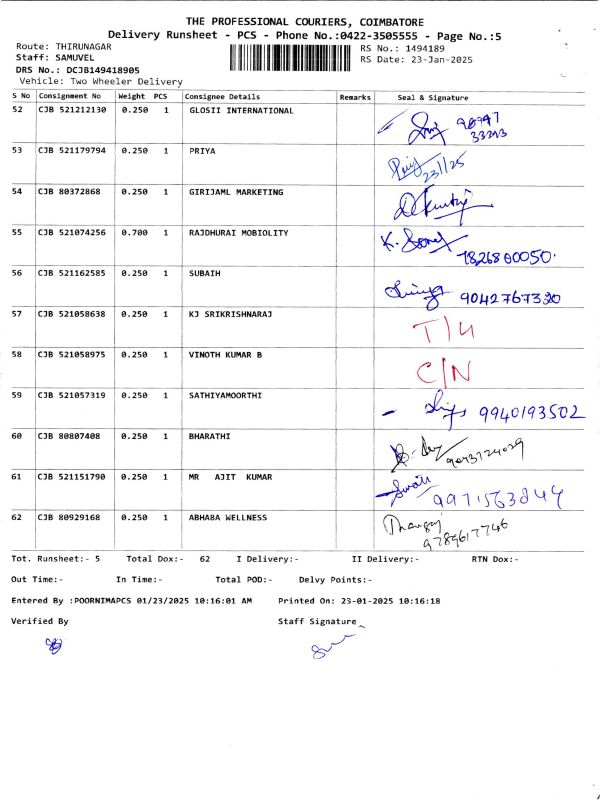 THE PROFESSIONAL COURIERS, COIMBATORE
Delivery Runsheet - PCS - Phone No.:0422-3505555 - Page No.:5
Route: THIRUNAGAR RS No.: 1494189
Staff: SAMUVEL RS Date: 23-Jan-2025
DRS No.: DCJB149418905
Vehicle: Two Wheeler Delivery
S No Consignment No Weight PCS Consignee Details Remarks Seal & Signature
52 CJB 521212130 0.250 1 GLOSII INTERNATIONAL
53 CJB 521179794 0.250 1 PRIYA Priy 23/1/25
54 CJB 80372868 0.250 1 GIRIJAML MARKETING
55 CJB 521074256 0.700 1 RAJDHURAI MOBIOLITY
56 CJB 521162585 0.250 1 SUBAIH 9042767320
57 CJB 521058638 0.250 1 KJ SRIKRISHNARAJ
58 CJB 521058975 0.250 1 VINOTH KUMAR B C/N
59 CJB 521057319 0.250 1 SATHIYAMOORTHI 9940193502
60 CJB 80807408 0.250 1 BHARATHI
61 CJB 521151790 0.250 1 MR AJIT KUMAR 9971563844
62 CJB 80929168 0.250 1 ABHA8A WELLNESS 9789617746
Tot. Runsheet:- 5 Total Dox:- 62 I Delivery:- II Delivery:- RTN Dox:-
Out Time:- In Time:- Total POD:- Delvy Points:-
Entered By :POORNIMAPCS 01/23/2025 10:16:01 AM Printed On: 23-01-2025 10:16:18
Verified By Staff Signature